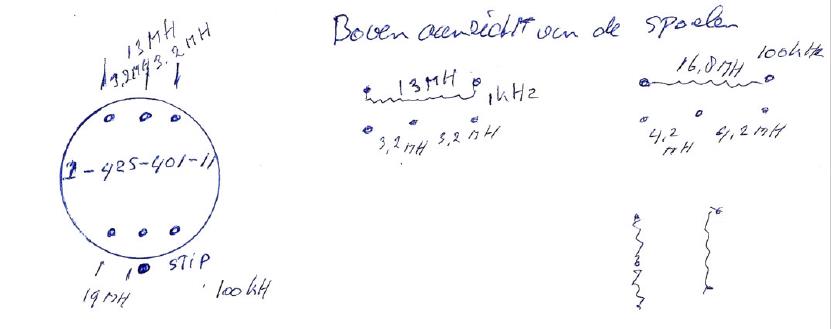 Boven aanzicht van de spoelen
13 MH
3,2 MH 3,2 MH
1-425-401-11
STIP
19 MH
100 kH
13 MH
1 kHz
3,2 MH 3,2 MH
16,8 MH 100 kHz
4,2 MH 4,2 MH